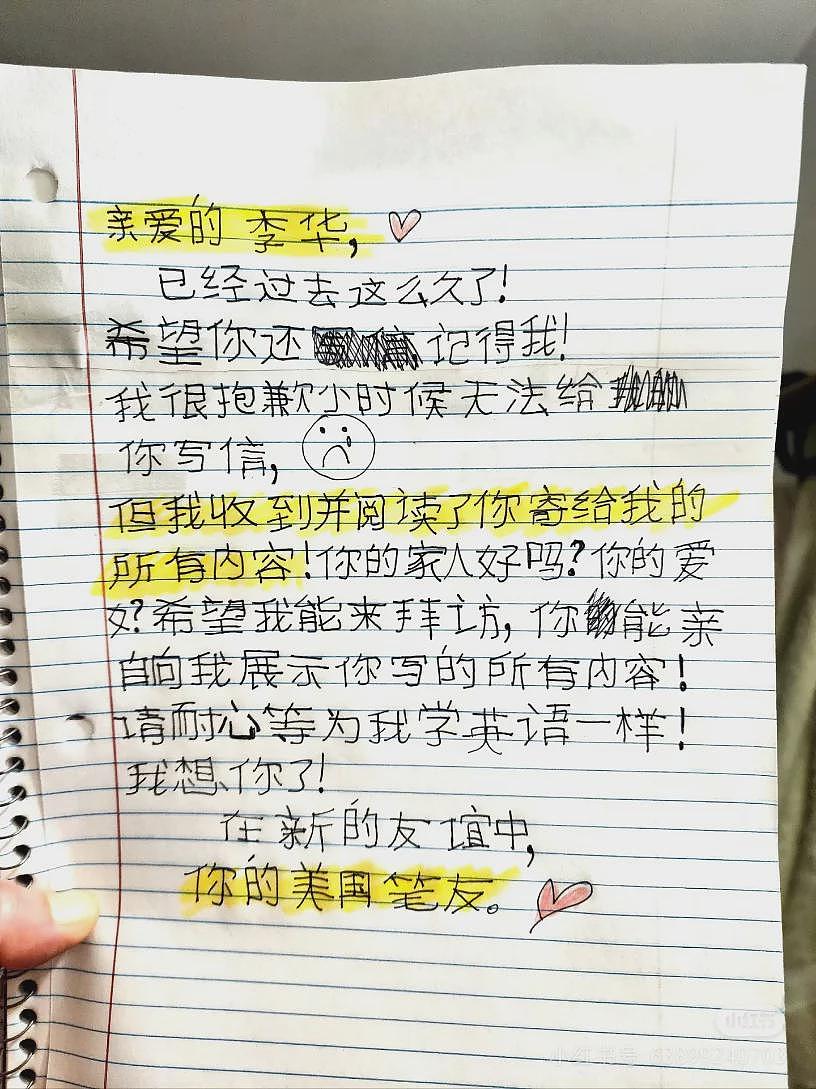 亲爱的 李华,
已经过去这么久了!
希望你还 记得我!
我很抱歉小时候无法给
你写信,
但我收到并阅读了你寄给我的
所有内容!你的家人好吗?你的爱
好?希望我能来拜访,你能亲
自向我展示你写的所有内容!
请耐心等为我学英语一样!
我想你了!
在新的友谊中,
你的美国笔友。
小红书